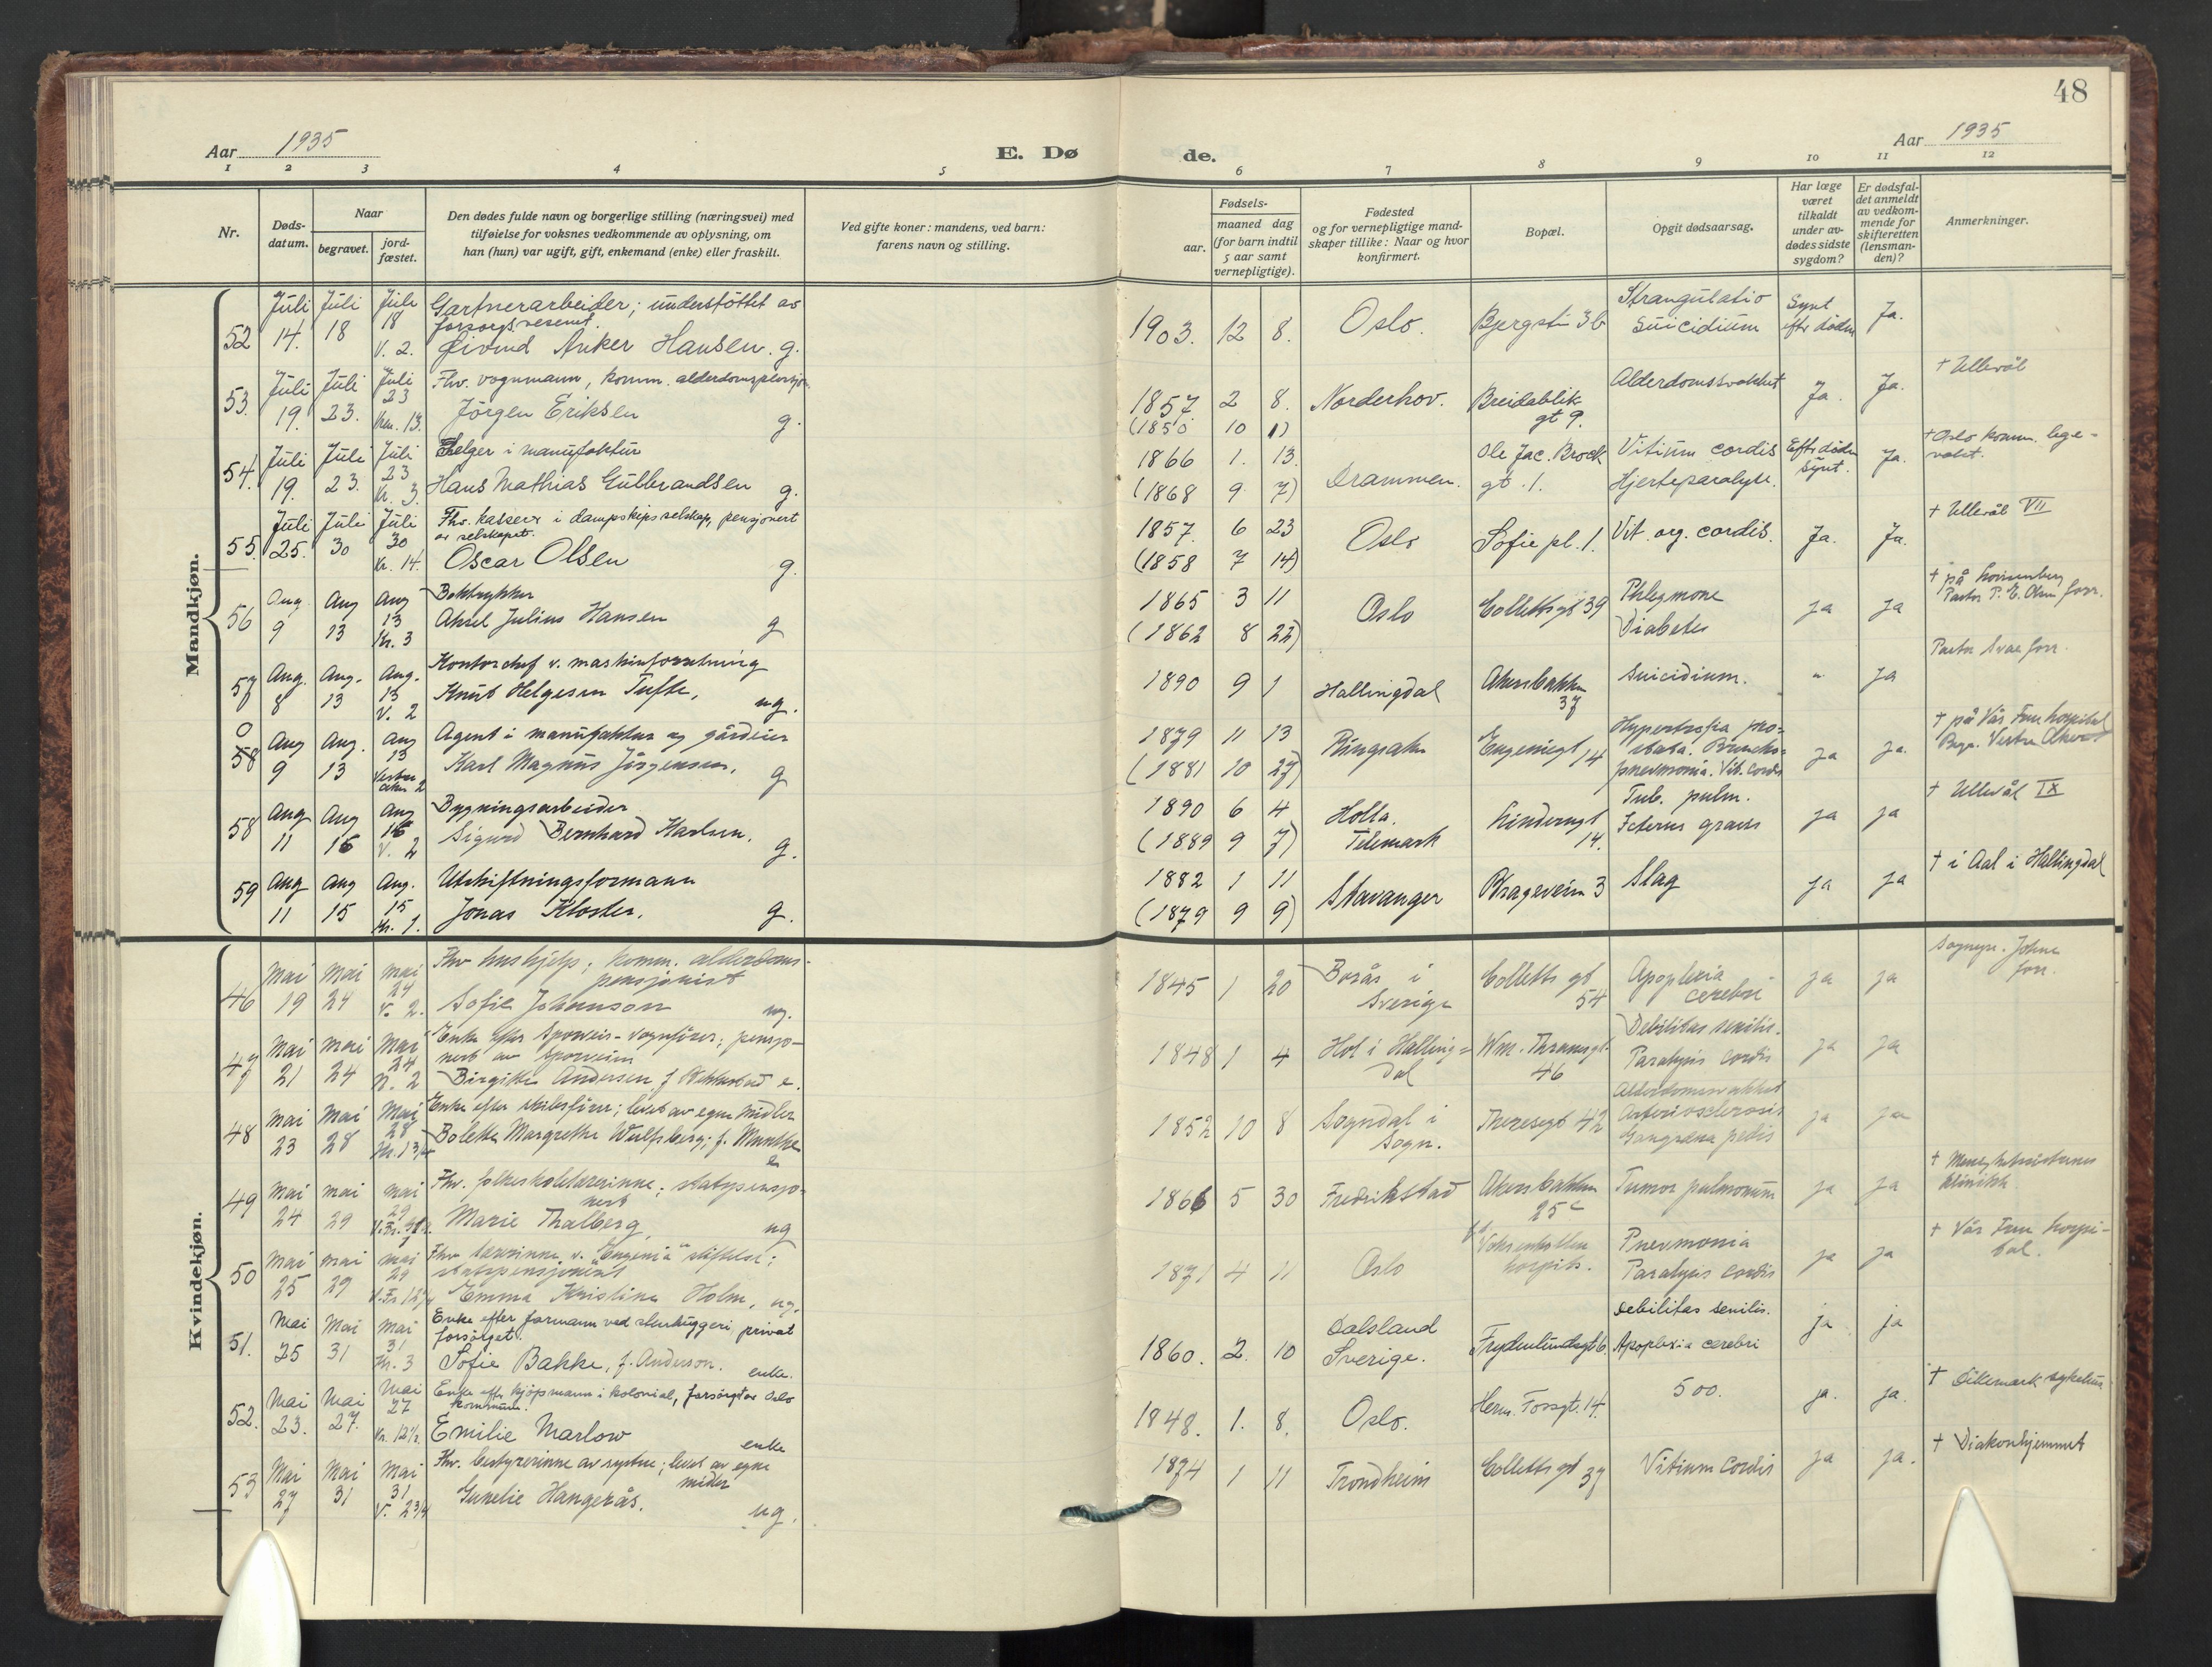 48
Aar 1935
E. Dø
de.
Aar 1935
1 2 3 4 5 6 7 8 9 10 11 12
Nr.
Døds-
datum.
Naar
begravet.
jord-
fæstet.
Den dødes fulde navn og borgerlige stilling (næringsvei) med
tilføielse for voksnes vedkommende av oplysning, om
han (hun) var ugift, gift, enkemand (enke) eller fraskilt.
Ved gifte koner: mandens, ved barn:
farens navn og stilling.
Fødsels-
aar.
maaned dag
(for barn indtil
5 aar samt
vernepligtige).
Fødested
og for vernepligtige mand-
skaper tillike: Naar og hvor
konfirmert.
Bopæl.
Opgit dødsaarsag.
Har læge
været
tilkaldt
under av-
dødes sidste
sygdom?
Er dødsfal-
det anmeldt
av vedkom-
mende for
skifteretten
(lensman-
den)?
Anmerkninger.
Mandkjøn.
52 Juli 14. Juli 18 Juli 18 V. 2.
Gartnerarbeider; understöttet av
forsorgsvesenet.
Øivind Anker Hansen. g.
1903. 12 8. Oslo. Bjergsti 3b
Strangulatio
Suicidium
Synt
efter döden
Ja.
53. Juli 19. Juli 23. Juli 23 13.
Fhv. vognmann, komm. alderdomspensjon
Jörgen Eriksen g.
1857 2 8.
(1850 10 1)
Norderhov. Breidablik
gt 9.
Alderdomssvakhet Ja. Ja. † Ullevål
54. Juli 19. Juli 23. Juli 23 Kr. 3.
Selger i manufaktur
Hans Mathias Gulbrandsen g.
1866 1. 13.
(1868 9 7)
Drammen. Ole Jac. Brock
gt. 1.
Vitium cordis
Hjerteparalyse.
Efter döden
synt.
Ja. † Oslo komm. lege-
vakt.
55. Juli 25. Juli 30 Juli 30 Kr. 14.
Fhv. kasserer i dampskipsselskap, pensjonert
av selskapet.
Oscar Olsen g.
1857. 6 23
(1858 7 14)
Oslo Sofie pl. 1. Vit. org. cordis. Ja. Ja. † Ullevål VII
56 Aug. 9 Aug 13 Aug 13 Kr. 3
Boktrykker
Aksel Julius Hansen g
1865 3 11
(1862 8 22)
Oslo Collettsgt 39
Phlegmone
Diabetes
ja ja † på
Pastor P. E. Olsen forr.
57 Aug. 8 Aug. 13 Aug. 13 V. 2
Kontorchef v. maskinforretning
Knut Helgesen Tufte, ug.
1890 9 1 Hallingdal Akersbakken
37
Suicidium. " ja Pastor Svae forr.
0
58 Aug 9 Aug. 13 Aug 13 Vestre Aker 2
Agent i manufaktur og gårdeier
Karl Magnus Jörgensen, g
1879 11 13
(1881 10 27)
Ringsaker Eugeniegt 14
Hypertrofia pro-
stata. Broncho-
pneumonia. Vit. cordis
ja ja. † på Vår Frue hospital
Begr. Vestre Aker
58 Aug 11 Aug 16 Aug 16 V. 2
Bygningsarbeider
Sigurd Bernhard Karlsen. g.
1890 6 4
(1889 9 7)
Holla.
Telemark
Linderngt
14.
Tub. pulm.
Icterus gravis
ja ja † Ullevål IX
59 Aug 11 Aug 15 Aug. 15 Kr. 1.
Utskiftningsformann
Jonas Kloster. g.
1882 1 11
(1879 9 9)
Stavanger Brageveien 3 Slag ja ja † i Aal i Hallingdal
Kvindekjøn.
46 Mai 19 Mai 24 Mai 24 V. 2.
Fhv. hushjelp; komm. alderdoms-
pensjonist
Sofie Johansson ug.
1845 1 20 Borås i
Sverige
Colletts gt
54
Apoplexia
cerebri
ja ja Sogneprest Johne
forr.
47 Mai 21 Mai 24 Mai 24 N. 2
Enke efter sporveis-vognfører; pensjo-
nert av sporveien
Birgitte Andersen f. Bekkestad e.
1848 1 4 Hol i Halling-
dal
Wm. Thranesgt.
46
Debilitas senilis.
Paralysis cordis
ja ja
48 Mai 23 Mai 28 Mai 28 Kr. 1 3/4
Enke efter skibsfører; levet av egne midler
Bolette Margrethe Wulfsberg; f. Munthe
e
1852 10 8 Sogndal i
Sogn.
Theresegt 42
Alderdomssvakhet
Arteriosclerosis
Gangræna pedis
ja ja
49 Mai 24 Mai 29 Mai 29
Fhv. folkeskolelærerinne; statspensjo-
nert
Marie Thalberg, ug
1866 5 30 Fredrikstad Akersbakken
25c
Tumor pulmonum ja ja † Menighetssösternes
klinikk
50 Mai 25 Mai 29 Mai 29
Fhv lærerinne v. "Eugenia" stiftelse;
statspensjonist
Emma Kristine Holm, ug.
1871 4 11 Oslo Voksenkollen
hospits.
Pneumonia
Paralysis cordis
ja ja † Vår Frue hospi-
tal.
51. Mai 25 Mai 31 Mai 31 Kr. 3
Enke efter formann ved stenhuggeri, privat
forsörget.
Sofie Bakke, f. Anderson. enke.
1860. 2. 10 Dalsland
Sverige.
Frydenlundsgt 6.
Debilitas senilis.
Apoplexia cerebri
ja ja
52. Mai 23. Mai 27. Mai 27 Kr. 12½
Enke efter kjöpmann i kolonial, forsörget av Oslo
kommune.
Emilie Marlow enke
1848. 1. 8. Oslo. Herm. Fossgt. 14. 500. ja. ja. † Dikemark sykehus
53 Mai 27 Mai 31 Mai 31 V. 2 3/4
Fhv. bestyrerinne av systue; levet av egne
midler
Gurelie Hangerås. ug.
1874 1 11 Trondheim Colletts gt 37 Vitium cordis ja ja. † Diakonhjemmet